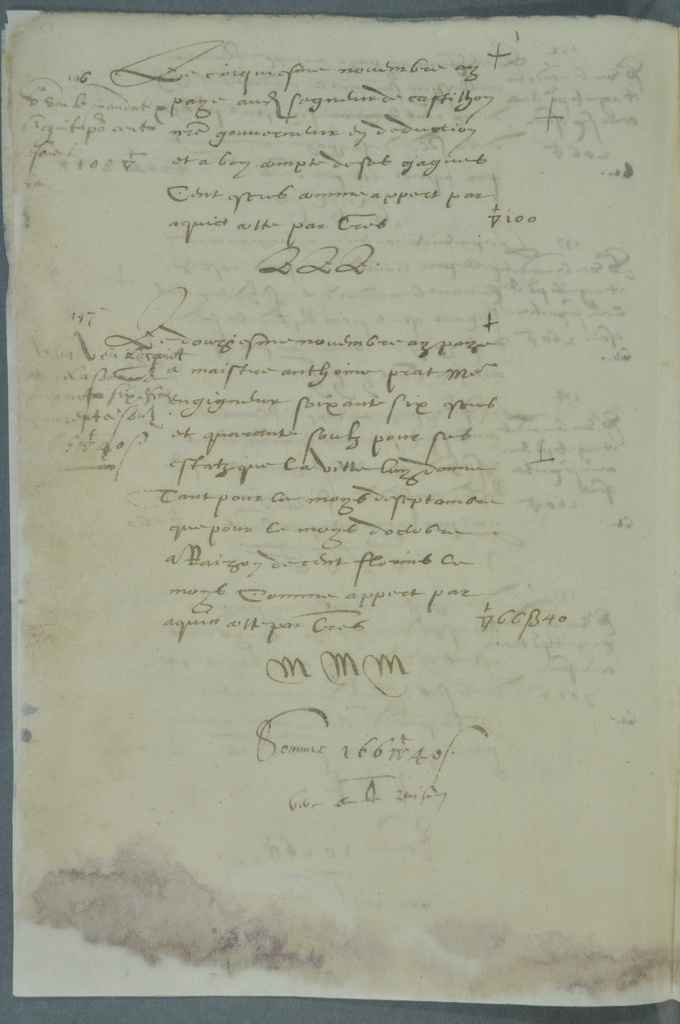 196
Le cinquiesme novembre ay
paye aud segneur de castilhon
nre gouverneur en deduction
et a bon compte de ses gaiges
Cent escus comme appert par
aquict cotte par Lres
▽ 100
LLL
197
Le douziesme novembre ay paye
a maistre anthoine prat me
engigneur soixante six escus
et quarante soulz pour ses
estatz que la ville luy donne
Tant pour le moys de septembre
que pour le moys doctobre
a Raizon de cent florins le
moys Comme appert par
aquict cotte par Lres
▽ 66 ß 40
M M M
Somme 166 ▽ 40 s